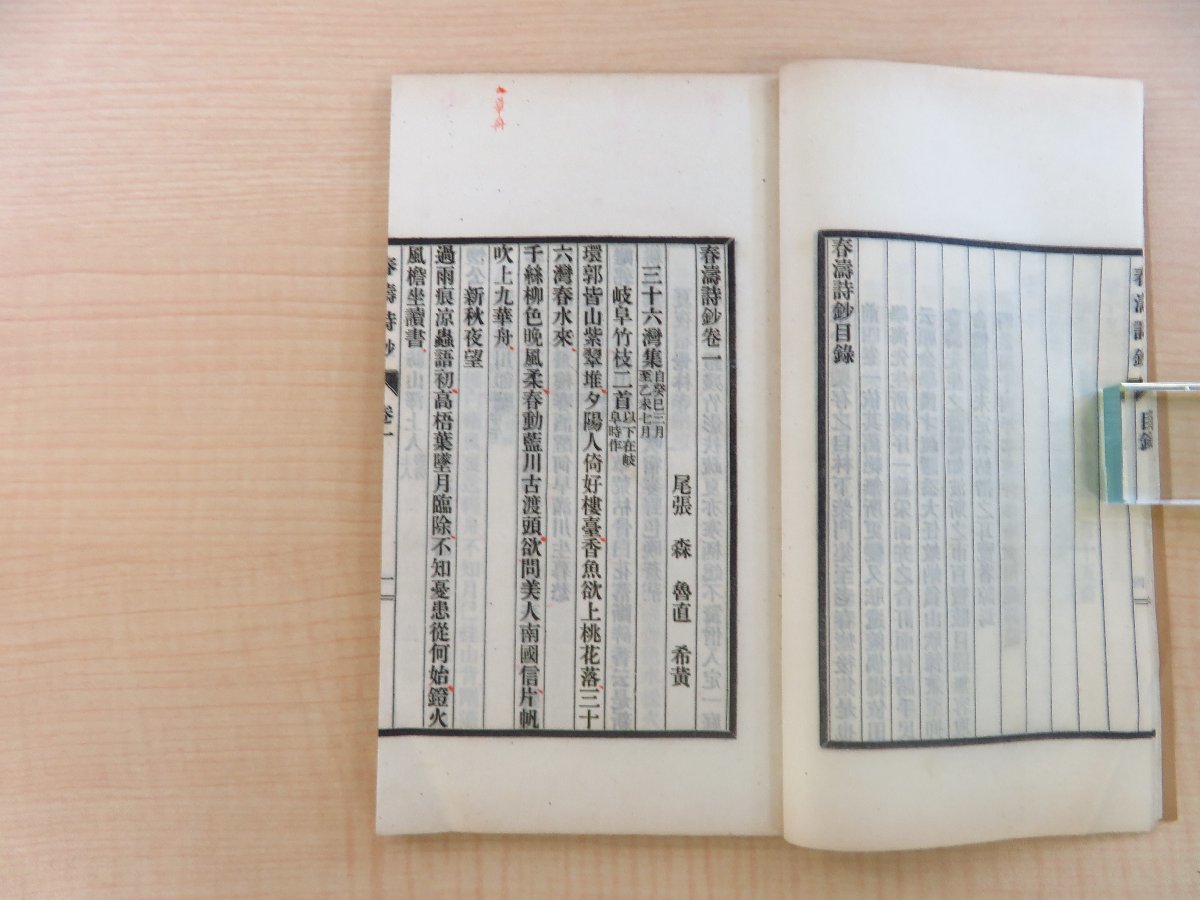 春濤詩鈔目錄
春濤詩鈔
目錄
春濤詩鈔卷一
尾張 森 魯直 希黃
三十六灣集自癸巳三月至乙未七月
岐阜竹枝二首以下在岐阜時作
環郭皆山紫翠堆夕陽人倚好樓臺香魚欲上桃花落三十
六灣春水來
千絲柳色晚風柔春動藍川古渡頭欲問美人南國信片帆
吹上九華舟
新秋夜望
過雨痕涼蟲語初高梧葉墜月臨除不知憂患從何始鐙火
風檐坐讀書
春濤詩鈔
卷一
一